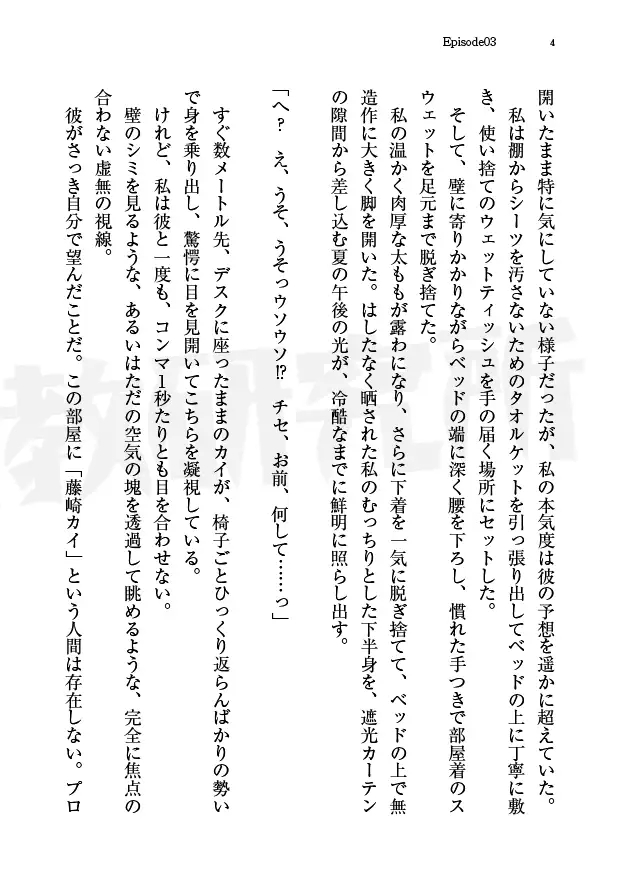 Episode03
4
開いたまま特に気にしていない様子だったが、私の本気度は彼の予想を遥かに超えていた。
私は棚からシーツを汚さないためのタオルケットを引っ張り出してベッドの上に丁寧に敷
き、使い捨てのウェットティッシュを手の届く場所にセットした。
そして、壁に寄りかかりながらベッドの端に深く腰を下ろし、慣れた手つきで部屋着のス
ウェットを足元まで脱ぎ捨てた。
私の温かく肉厚な太ももが露わになり、さらに下着を一気に脱ぎ捨てて、ベッドの上で無
造作に大きく脚を開いた。はしたなく晒された私のむっちりとした下半身を、遮光カーテン
の隙間から差し込む夏の午後の光が、冷酷なまでに鮮明に照らし出す。
「へ？　え、うそ、うそっウソウソ!?　チセ、お前、何して……っ」
すぐ数メートル先、デスクに座ったままのカイが、椅子ごとひっくり返らんばかりの勢い
で身を乗り出し、驚愕に目を見開いてこちらを凝視している。
けれど、私は彼と一度も、コンマ1秒たりとも目を合わせない。
壁のシミを見るような、あるいはただの空気の塊を透過して眺めるような、完全に焦点の
合わない虚無の視線。
彼がさっき自分で望んだことだ。この部屋に「藤崎カイ」という人間は存在しない。プロ
教研究所